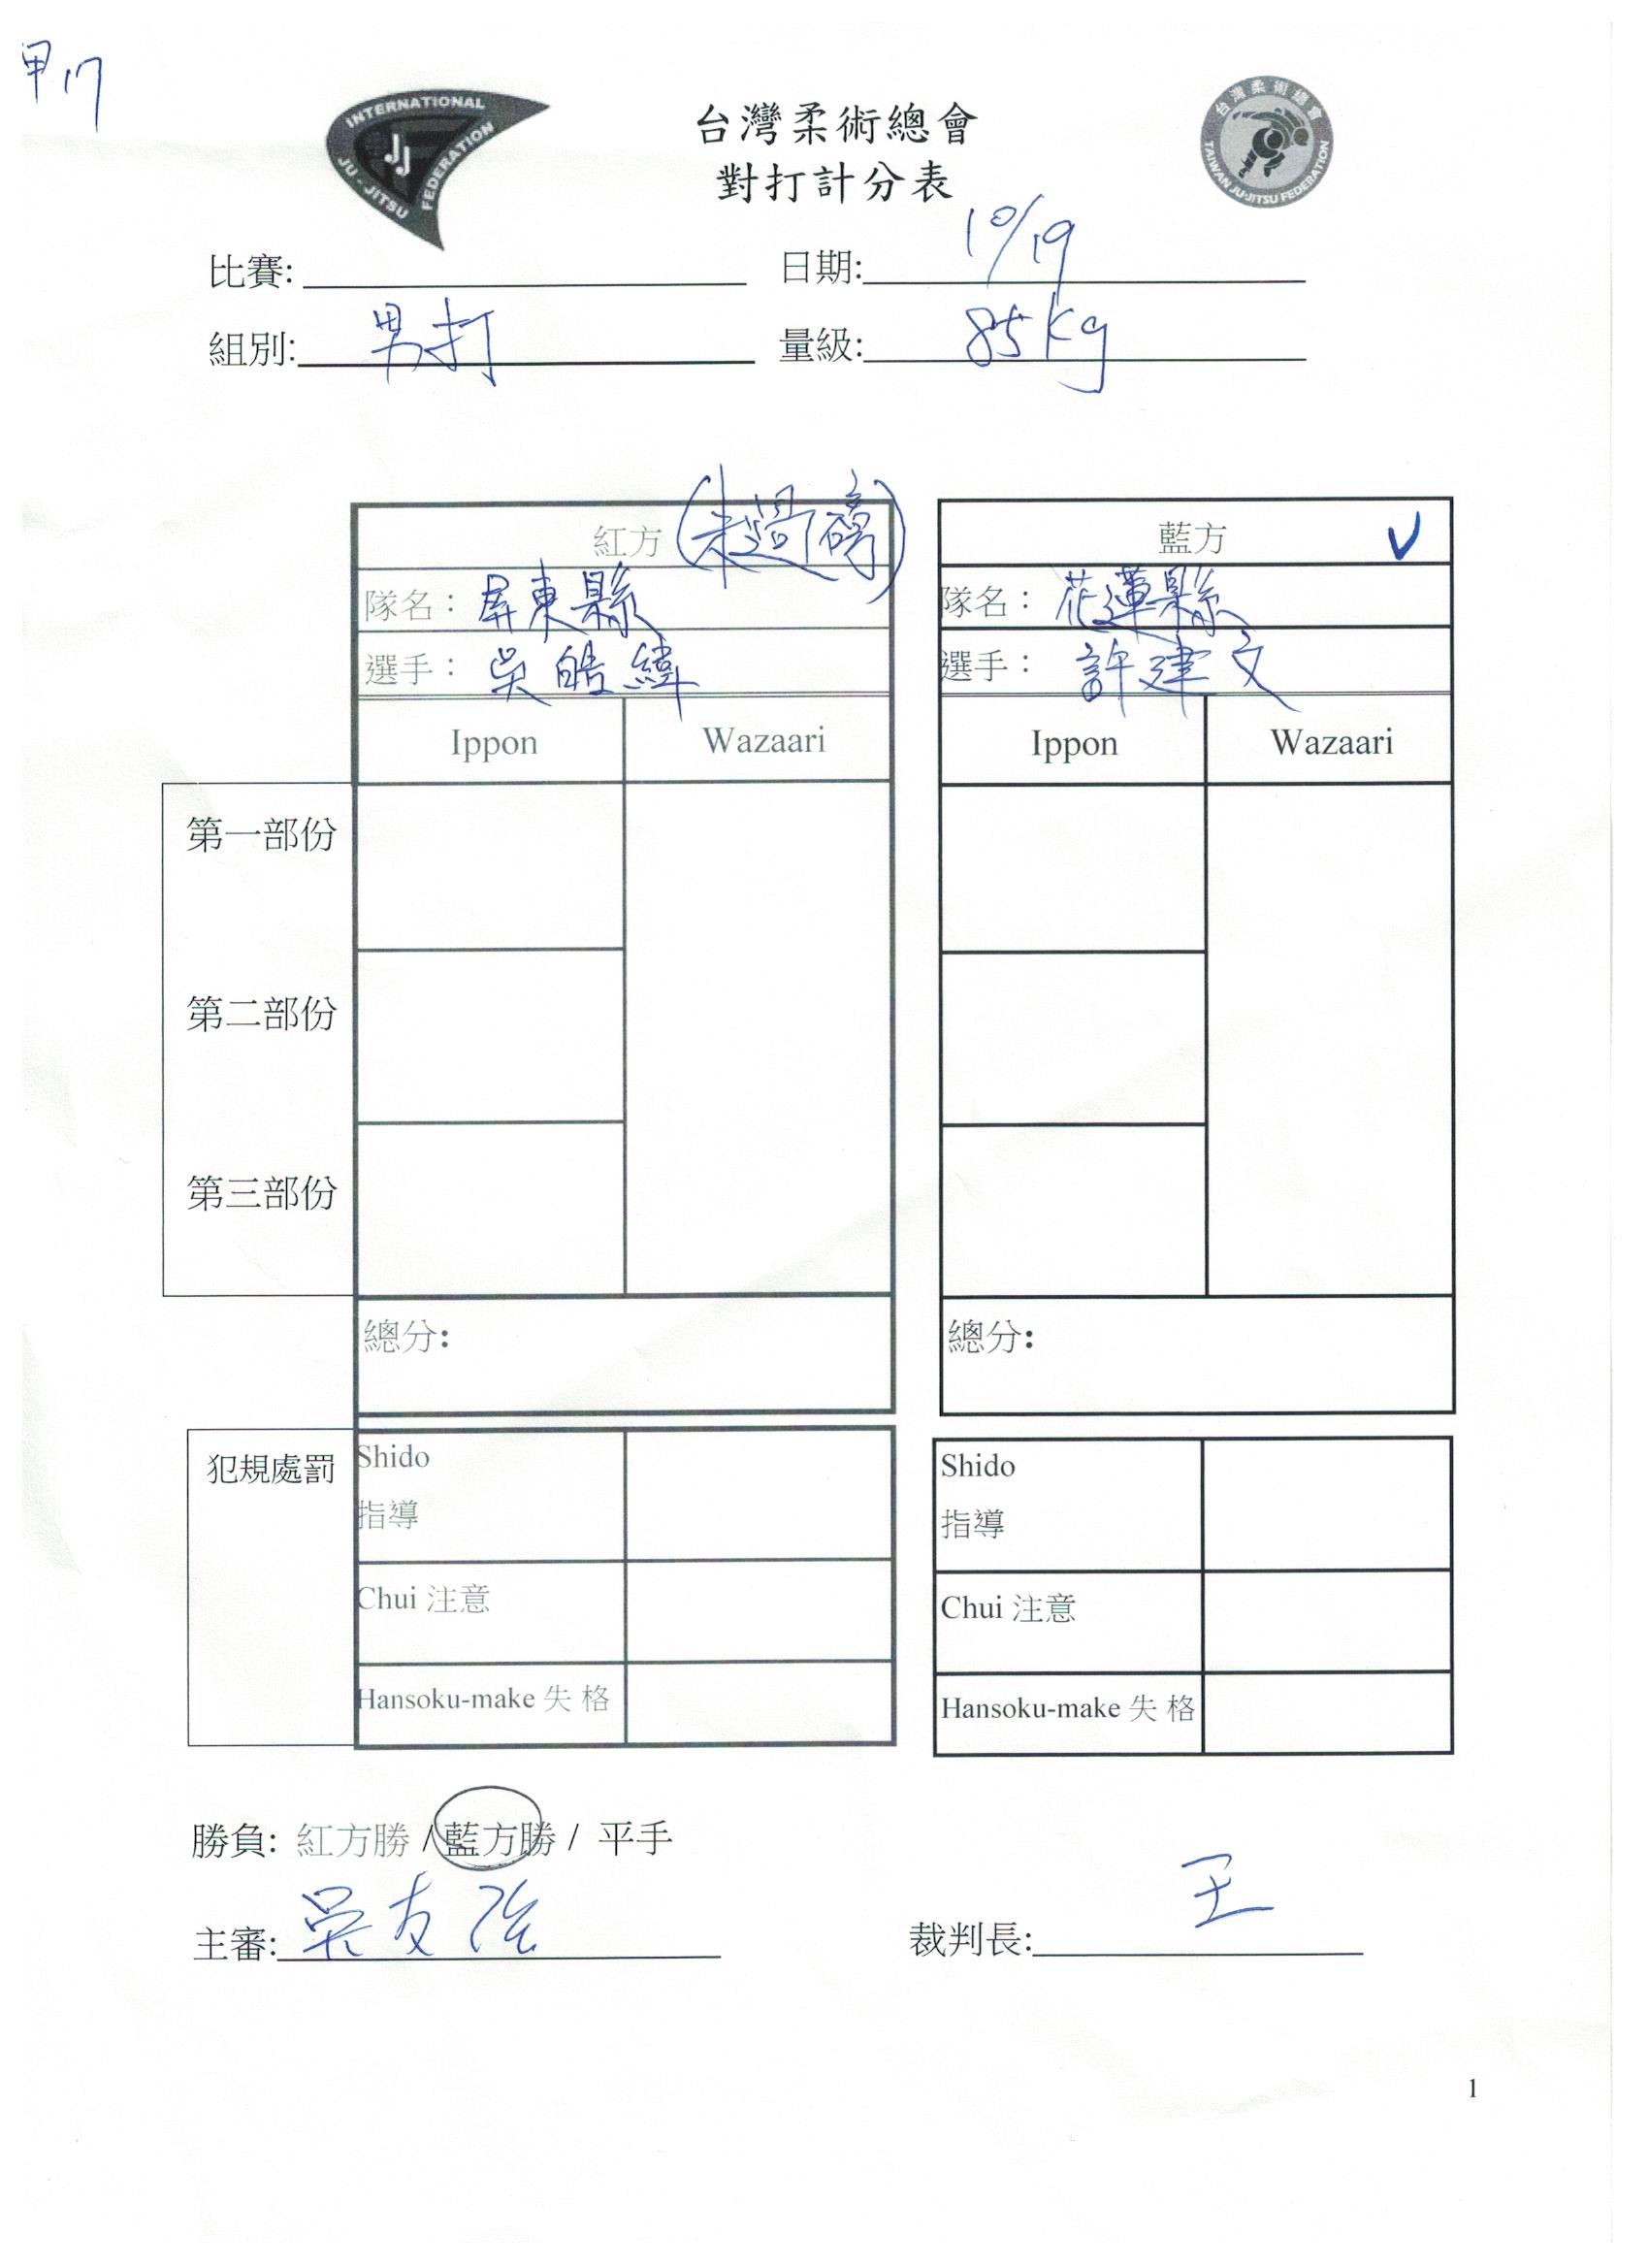 甲17
INTERNATIONAL
JU-JITSU FEDERATION
JJ
台灣柔術總會
對打計分表
台灣柔術總會
TAIWAN JU-JITSU FEDERATION
比賽: 日期: 10/19
組別: 男打 量級: 85kg
紅方 (未過磅) 藍方 V
隊名：屏東縣 隊名：花蓮縣
選手：吳皓緯 選手：許建文
Ippon Wazaari Ippon Wazaari
第一部份
第二部份
第三部份
總分: 總分:
犯規處罰
Shido Shido
指導 指導
Chui 注意 Chui 注意
Hansoku-make 失 格 Hansoku-make 失 格
勝負: 紅方勝 / 藍方勝 / 平手
主審: 吳友強 裁判長: 王
1